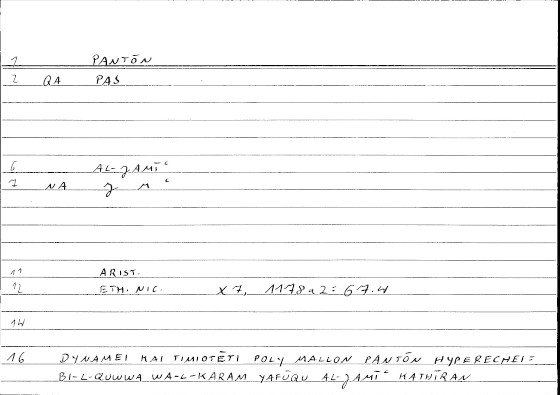 1 PANTŌN
2 QA PAS
6 AL-ǦAMĪʿ
7 NA ǧ M ʿ
11 ARIST.
12 ETH. NIC. X 7, 1178a2 = 67.4
14
16 DYNAMEI KAI TIMIOTĒTI POLY MALLON PANTŌN HYPERECHEI =
BI-L-QUWWA WA-L-KARAM YAFŪQU AL-ǦAMĪʿ KATHĪRAN